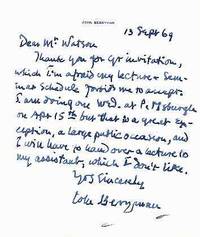 JOHN BERRYMAN
13 Sept 69
Dear Mr Watson
Thank you for yr invitation,
which I'm afraid my lecture & Sem-
inar schedule forbid me to accept.
I am doing one Wed. at Pittsburgh
on Apr 15th but that is a great ex-
ception, a large public occasion, and
I will have to hand over a lecture to
my assistant, which I don't like.
Yrs sincerely
John Berryman